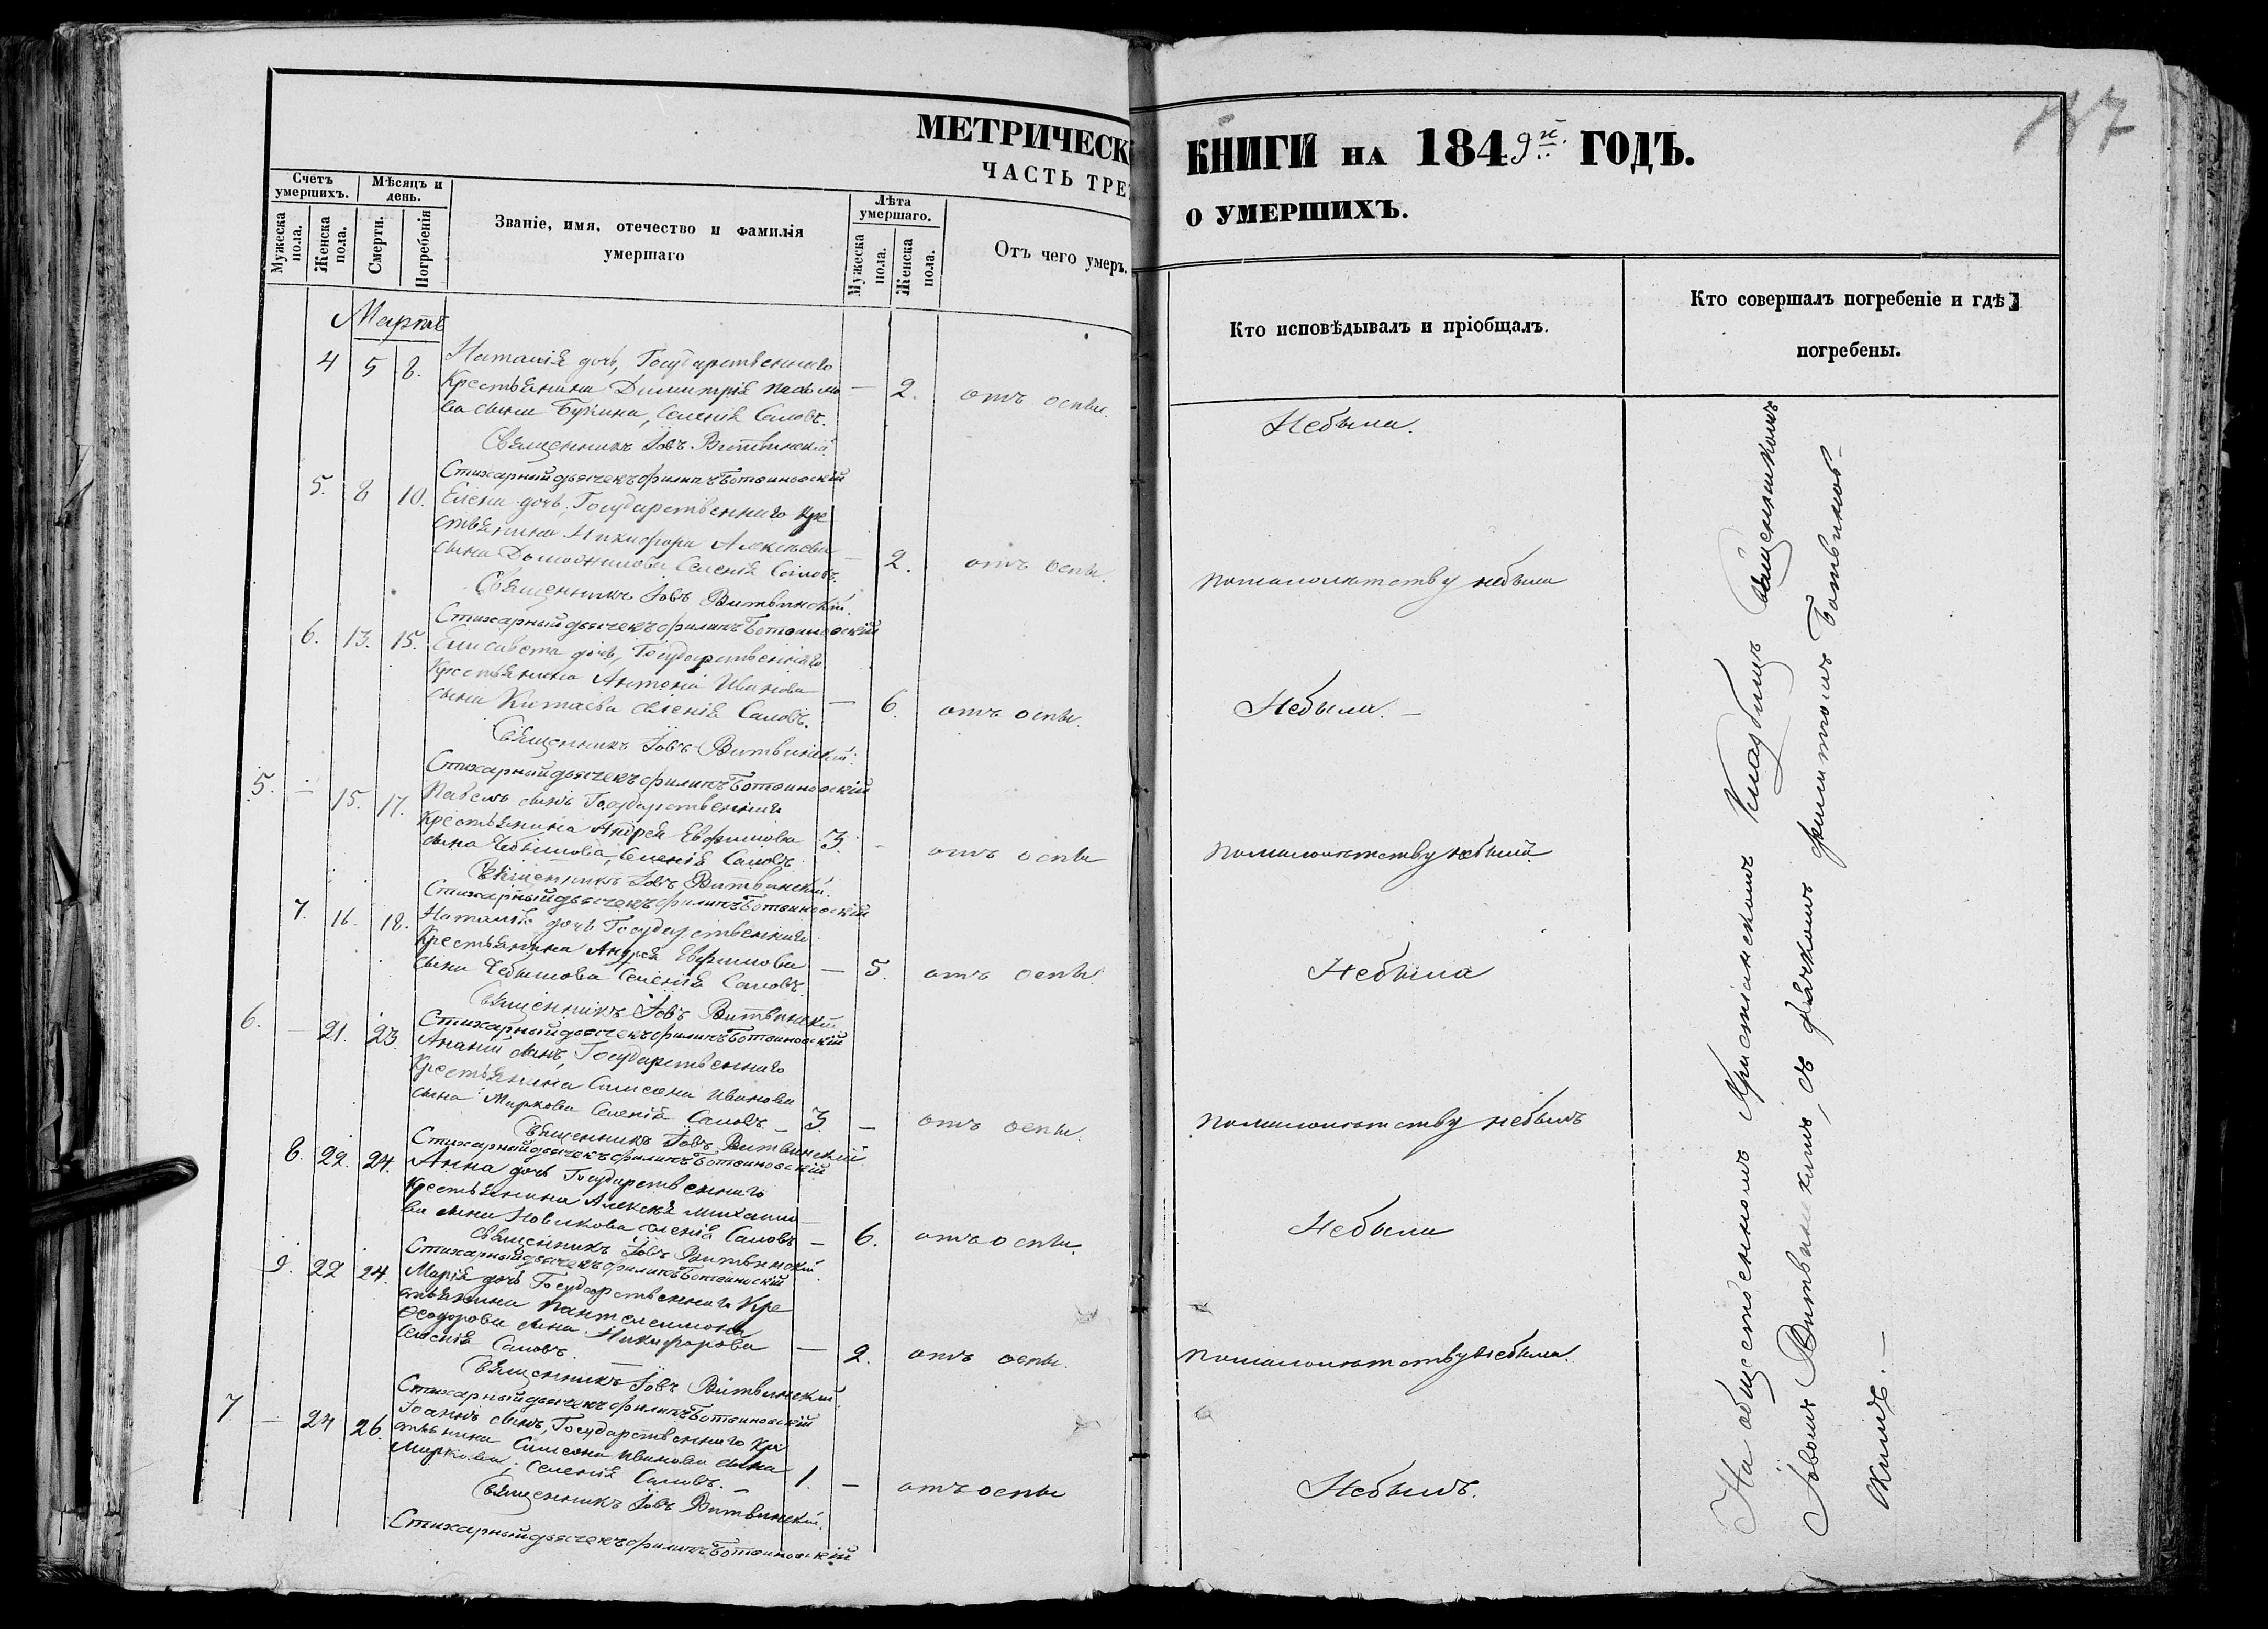 МЕТРИЧЕСК
ЧАСТЬ ТРЕ
Счетъ умершихъ.
Мѣсяцъ и день.
Званіе, имя, отечество и фамилія умершаго
Лѣта умершаго.
Отъ чего умеръ.
Мужеска пола.
Женска пола.
Смерти.
Погребенія
Мужеска пола.
Женска пола.
Мартъ
4 5 8. Наталія дочь, Государственнаго
Крестьянина Димитрія Павло
ва сына Букина, Селенія Саловъ. — 2. отъ оспы.
Священникъ Іовъ Витвинскій.
Стихарный дьячекъ филипъ Ботвиновскій
5. 8 10. Елена дочь, Государственнаго Кре
стьянина Никифора Алексѣева
сына Селенія Саловъ. — 2. отъ оспы.
Священникъ Іовъ Витвинскій.
Стихарный дьячекъ филипъ Ботвиновскій
6. 13. 15. Елисавета дочь, Государственнаго
Крестьянина Антонія Иванова
сына Китаева селенія Саловъ. — 6. отъ оспы.
Священникъ Іовъ Витвинскій.
Стихарный дьячекъ филипъ Ботвиновскій
5. — 15. 17. Павелъ сынъ Государственнаго
Крестьянина Андрея Евфимова
сына Чебышова, Селенія Саловъ. 3. — отъ оспы
Священникъ Іовъ Витвинскій.
Стихарный дьячекъ филипъ Ботвиновскій
7. 16. 18. Наталія дочь Государственнаго
Крестьянина Андрея Евфимова
сына Чебышова Селенія Саловъ. — 5. отъ оспы.
Священникъ Іовъ Витвинскій
Стихарный дьячекъ филипъ Ботвиновскій
6. — 21. 23. Ананій сынъ, Государственнаго
Крестьянина Симеона Иванова
сына Маркова Селенія Саловъ — 3. — отъ оспы.
Священникъ Іовъ Витвинскій.
Стихарный дьячекъ филипъ Ботвиновскій
8. 22. 24. Анна дочь Государственнаго
Крестьянина Алексѣя Михаило
ва сына Новикова селенія Саловъ — 6. отъ оспы.
Священникъ Іовъ Витвинскій.
Стихарный дьячекъ филипъ Ботвиновскій
9. 22 24. Марія дочь Государственнаго Кре
стьянина Пантелеимона
Ѳеодорова сына Никифорова
Селенія Саловъ. — 2. отъ оспы.
Священникъ Іовъ Витвинскій.
Стихарный дьячекъ филипъ Ботвиновскій
7 — 24 26. Іоаннъ сынъ, Государственнаго Кре
стьянина Симеона Иванова сына
Маркова, селенія Саловъ. 1. — отъ оспы
Священникъ Іовъ Витвинскій.
Стихарный дьячекъ филипъ Ботвиновскій
КНИГИ НА 1849й. ГОДЪ.
О УМЕРШИХЪ.
Кто исповѣдывалъ и пріобщалъ.
Кто совершалъ погребеніе и гдѣ
погребены.
Небыла.
помалолѣтству небыла
Небыла. —
помалолѣтству небылъ.
Небыла
помалолѣтству небылъ
Небыла
помалолѣтству небыла.
Небылъ.
На общественномъ Христіанскомъ Кладбищѣ Священникомъ
Іовомъ Витвинскимъ, съ дьячкомъ филиппомъ Ботвинов-
скимъ. —